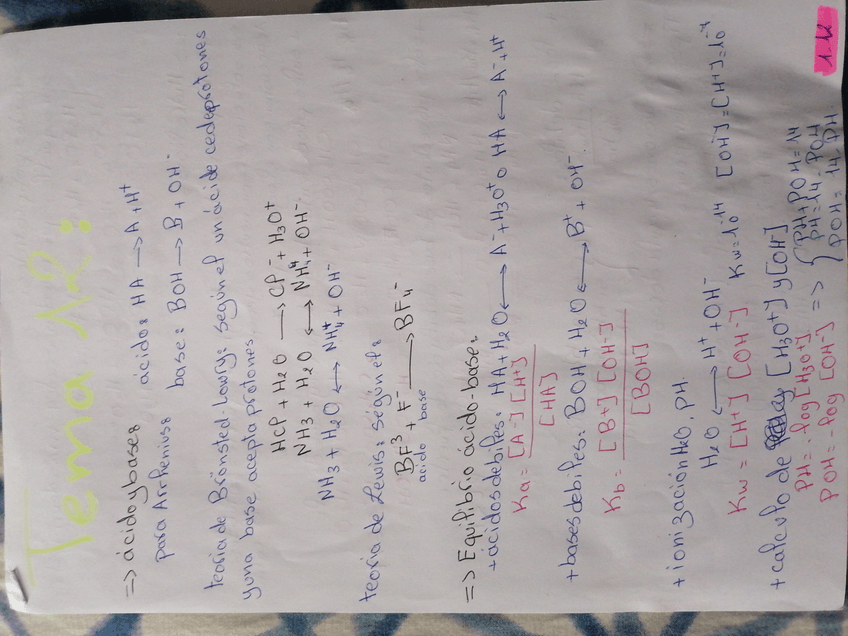 Tema 12:
=> ácido y base:
para Arrhenius: ácido: HA → A + H⁺
base: BOH → B + OH⁻
teoria de Brönsted-Lowry: según el un ácide cede protones
y una base acepta protones.
HCl + H₂O → Cl⁻ + H₃O⁺
NH₃ + H₂O ↔ NH₄⁺ + OH⁻
NH₃ + H₂O ↔ NH₄⁺ + OH⁻
teoria de Lewis: según el:
BF³ + F⁻ → BF₄⁻
acido base
=> Equilibrio ácido-base:
+ ácidos debiles: HA + H₂O ↔ A⁻ + H₃O⁺ o HA ↔ A⁻ + H⁺
Ka = [A⁻] [H⁺] / [HA]
+ bases debiles: BOH + H₂O ↔ B⁺ + OH⁻
Kb = [B⁺] [OH⁻] / [BOH]
+ ionización H₂O, PH.
H₂O ↔ H⁺ + OH⁻
Kw = [H⁺] [OH⁻] Kw = 10⁻¹⁴ [OH⁻] = [H⁺] = 10⁻⁷
+ calculo de [H₃O⁺] y [OH⁻]
PH = - log [H₃O⁺] => { PH + POH = 14
POH = - log [OH⁻] PH = 14 - POH
POH = 14 - PH.
1-12